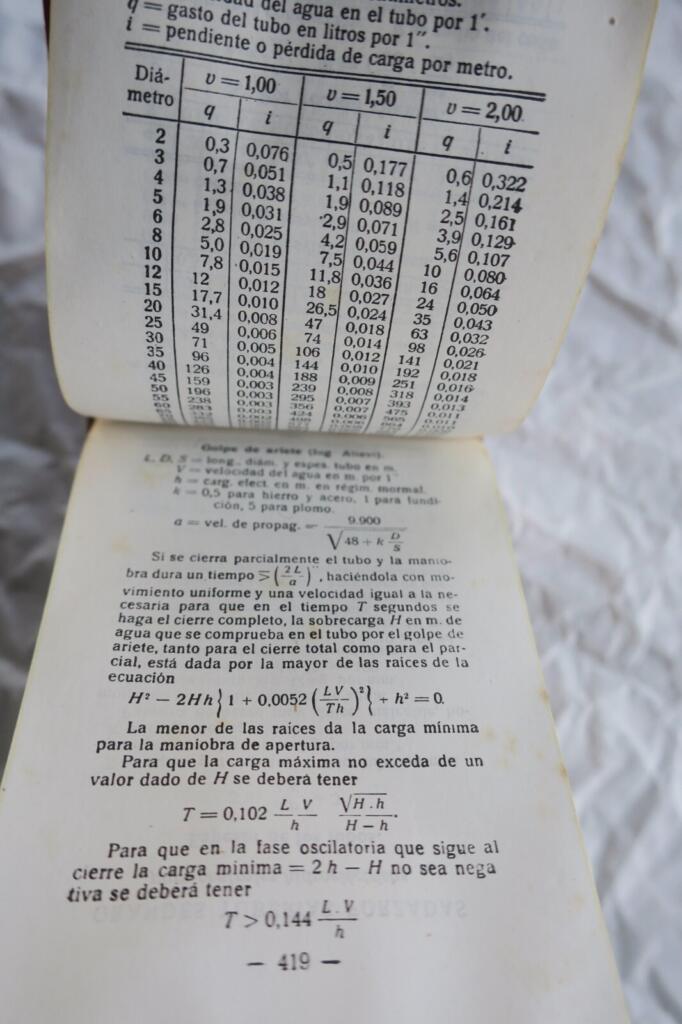 dad del agua en el tubo por 1′.
q = gasto del tubo en litros por 1″.
i = pendiente o pérdida de carga por metro.
Diá-metro v = 1,00 v = 1,50 v = 2,00
q i q i q i
2 0,3 0,076 0,5 0,177 0,6 0,322
3 0,7 0,051 1,1 0,118 1,4 0,214
4 1,3 0,038 1,9 0,089 2,5 0,161
5 1,9 0,031 2,9 0,071 3,9 0,129
6 2,8 0,025 4,2 0,059 5,6 0,107
8 5,0 0,019 7,5 0,044 10 0,080
10 7,8 0,015 11,8 0,036 16 0,064
12 12 0,012 18 0,027 24 0,050
15 17,7 0,010 26,5 0,024 35 0,043
20 31,4 0,008 47 0,018 63 0,032
25 49 0,006 74 0,014 98 0,026
30 71 0,005 106 0,012 141 0,021
35 96 0,004 144 0,010 192 0,018
40 126 0,004 188 0,009 251 0,016
45 159 0,003 239 0,008 318 0,014
50 196 0,003 295 0,007 393 0,013
55 238 0,003 356 0,007 475 0,011
Golpe de ariete (Ing. Allievi).
L, D, S = long., diám. y espes. tubo en m.
V = velocidad del agua en m. por 1″
h = carg. efect. en m. en régim. normal.
k = 0,5 para hierro y acero, 1 para fundi-
ción, 5 para plomo.
a = vel. de propag. = 9.900 / √(48 + k D/S)
Si se cierra parcialmente el tubo y la manio-
bra dura un tiempo ⋝ (2L/a)″, haciéndola con mo-
vimiento uniforme y una velocidad igual a la ne-
cesaria para que en el tiempo T segundos se
haga el cierre completo, la sobrecarga H en m. de
agua que se comprueba en el tubo por el golpe de
ariete, tanto para el cierre total como para el par-
cial, está dada por la mayor de las raíces de la
ecuación
H² − 2Hh {1 + 0,0052 (LV/Th)²} + h² = 0.
La menor de las raíces da la carga mínima
para la maniobra de apertura.
Para que la carga máxima no exceda de un
valor dado de H se deberá tener
T = 0,102 L V/h √H.h/H − h.
Para que en la fase oscilatoria que sigue al
cierre la carga minima = 2 h − H no sea nega
tiva se deberá tener
T > 0,144 L.V/h
— 419 —